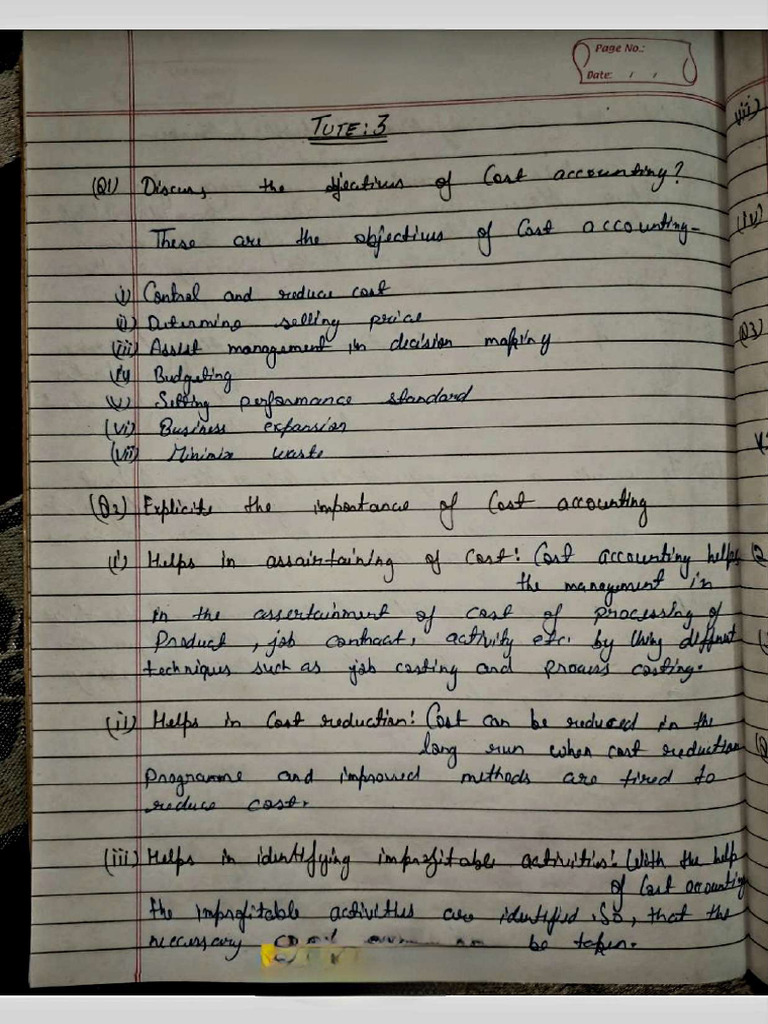 Page No.:
Date: / /
TUTE: 3
(Q1) Discuss the objectives of Cost accounting?
These are the objectives of Cost accounting-
i) Control and reduce cost
ii) Determine selling price
(iii) Assist management in decision making
(iv) Budgeting
(v) Setting performance standard
(vi) Business expansion
(vii) Minimize waste
(Q2) Explicite the importance of Cost accounting
(i) Helps in assaintaining of cost: Cost accounting helps
the management in
in the assertainment of cost of processing of
Product, job contract, activity etc. by Using different
techniques such as job costing and process costing.
(ii) Helps in Cost reduction: Cost can be reduced in the
long run when cost reduction
Programme and improved methods are tired to
reduce cost.
(iii) Helps in identifying improfitable activities: With the help
of Cost accounting
the improfitable activities are identified. So, that the
necessary be taken.
viii)
(iv)
(Q3)